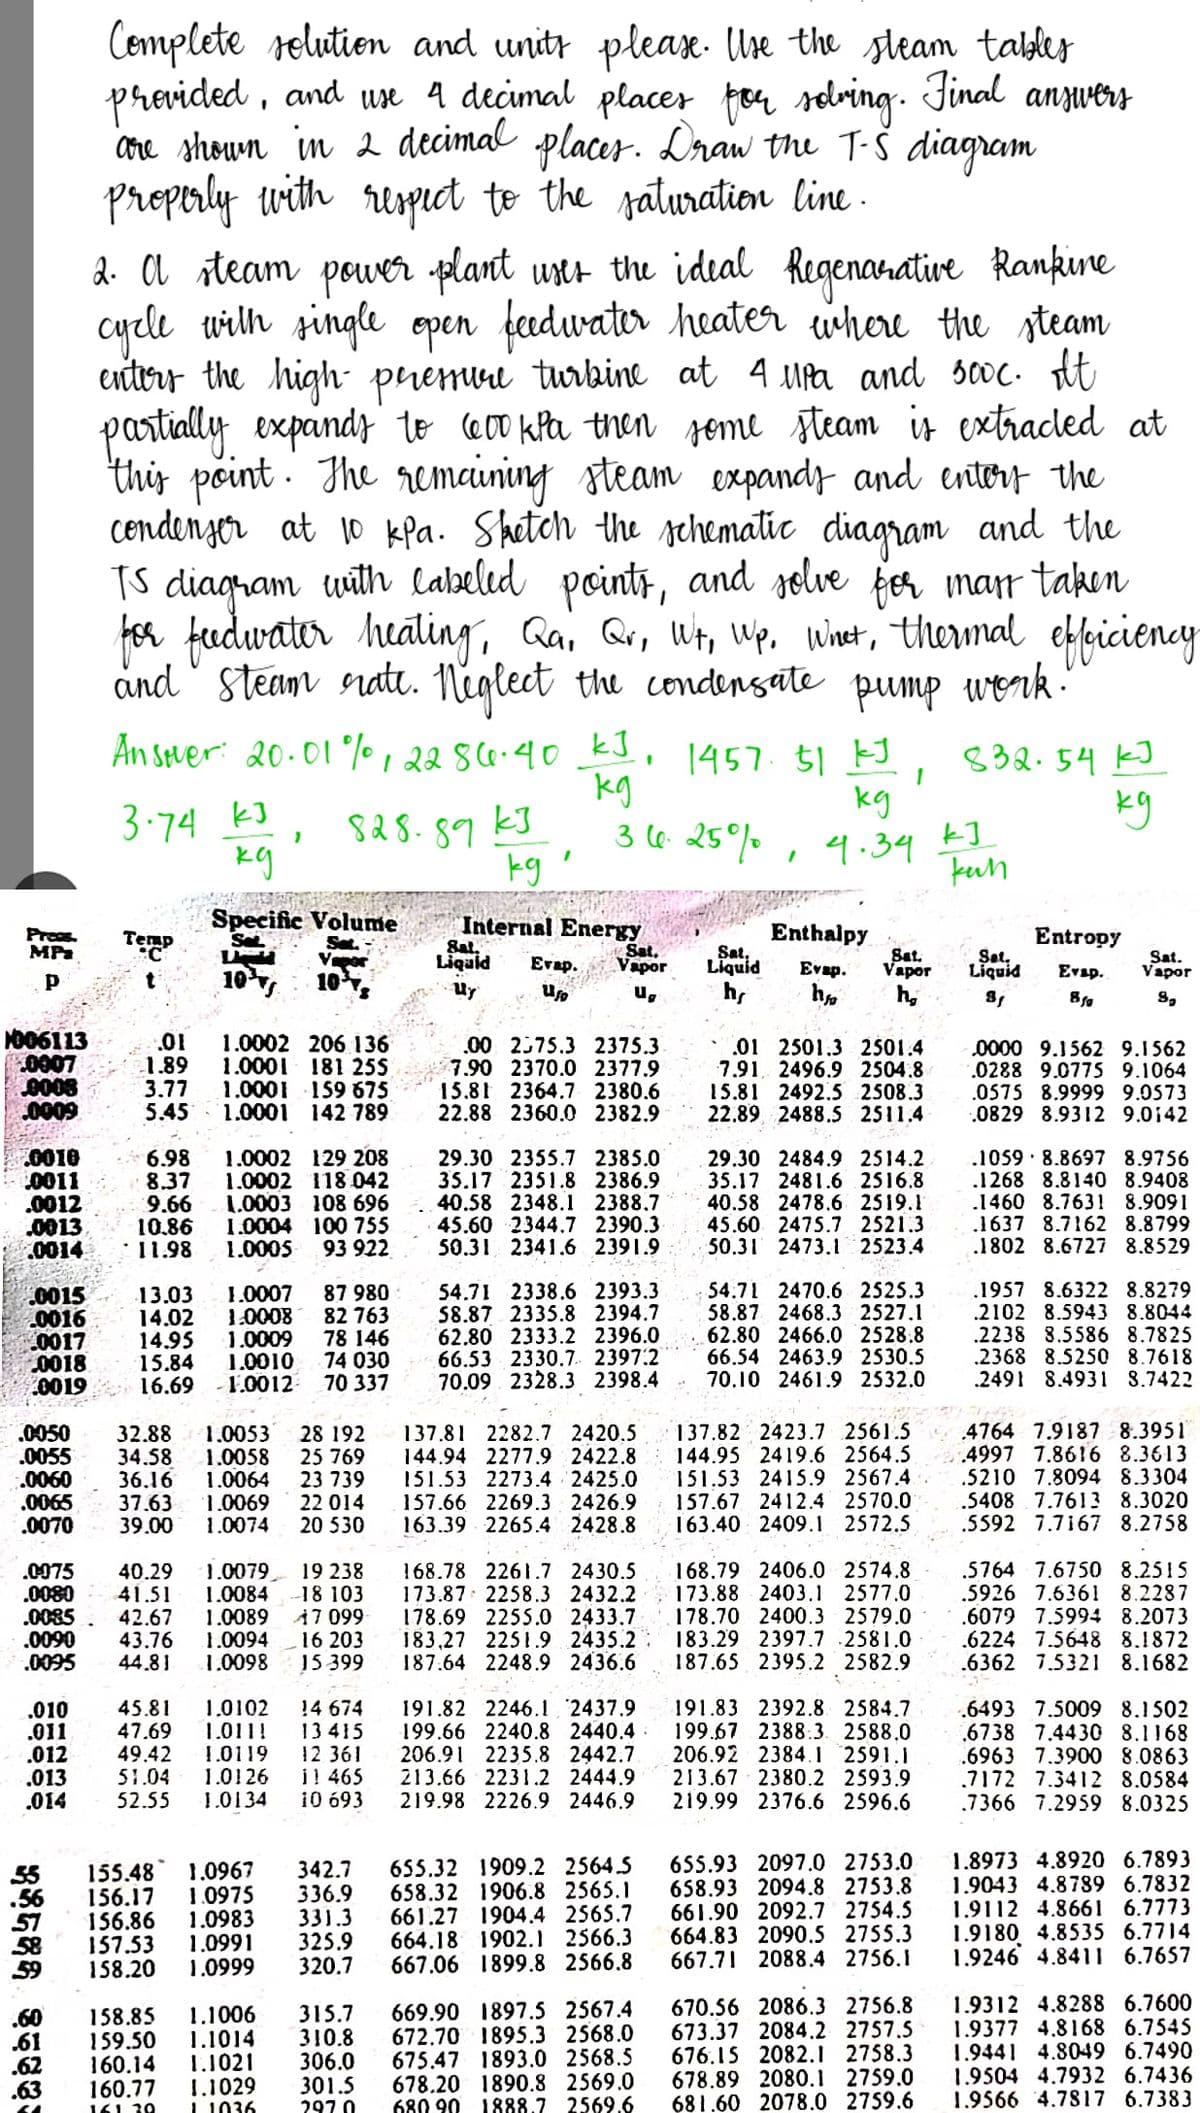 Complete solution and units please. Use the steam tables
provided, and use 4 decimal places for solving. Final answers
are shown in 2 decimal places. Draw the T-S diagram
properly with respect to the saturation line.
2. A steam power plant uses the ideal Regenarative Rankine
cycle with single open feedwater heater where the steam
enters the high-pressure turbine at 4 MPa and 300C. It
partially expands to 600 kPa then some steam is extracted at
this point. The remaining steam expands and enters the
condenser at 10 kPa. Sketch the schematic diagram and the
TS diagram with labeled points, and solve for mass taken
for feedwater heating, Qa, Qr, Wt, Wp, Wnet, thermal efficiency
and steam rate. Neglect the condensate pump work.
Answer: 20.01%, 2286.40 kJ/kg, 1457.51 kJ/kg, 832.54 kJ/kg
3.74 kJ/kg, 828.89 kJ/kg, 36.25%, 4.34 kJ/kwh
Specific Volume Internal Energy Enthalpy Entropy
Press. Temp Sat. Sat. Sat. Sat. Sat. Sat. Sat. Sat.
MPa °C Liquid Vapor Liquid Evap. Vapor Liquid Evap. Vapor Liquid Evap. Vapor
p t 10³vf 10³vg uf ufg ug hf hfg hg sf sfg sg
006113 .01 1.0002 206 136 .00 2375.3 2375.3 .01 2501.3 2501.4 .0000 9.1562 9.1562
.0007 1.89 1.0001 181 255 7.90 2370.0 2377.9 7.91 2496.9 2504.8 .0288 9.0775 9.1064
.0008 3.77 1.0001 159 675 15.81 2364.7 2380.6 15.81 2492.5 2508.3 .0575 8.9999 9.0573
.0009 5.45 1.0001 142 789 22.88 2360.0 2382.9 22.89 2488.5 2511.4 .0829 8.9312 9.0142
.0010 6.98 1.0002 129 208 29.30 2355.7 2385.0 29.30 2484.9 2514.2 .1059 8.8697 8.9756
.0011 8.37 1.0002 118 042 35.17 2351.8 2386.9 35.17 2481.6 2516.8 .1268 8.8140 8.9408
.0012 9.66 1.0003 108 696 40.58 2348.1 2388.7 40.58 2478.6 2519.1 .1460 8.7631 8.9091
.0013 10.86 1.0004 100 755 45.60 2344.7 2390.3 45.60 2475.7 2521.3 .1637 8.7162 8.8799
.0014 11.98 1.0005 93 922 50.31 2341.6 2391.9 50.31 2473.1 2523.4 .1802 8.6727 8.8529
.0015 13.03 1.0007 87 980 54.71 2338.6 2393.3 54.71 2470.6 2525.3 .1957 8.6322 8.8279
.0016 14.02 1.0008 82 763 58.87 2335.8 2394.7 58.87 2468.3 2527.1 .2102 8.5943 8.8044
.0017 14.95 1.0009 78 146 62.80 2333.2 2396.0 62.80 2466.0 2528.8 .2238 8.5586 8.7825
.0018 15.84 1.0010 74 030 66.53 2330.7 2397.2 66.54 2463.9 2530.5 .2368 8.5250 8.7618
.0019 16.69 1.0012 70 337 70.09 2328.3 2398.4 70.10 2461.9 2532.0 .2491 8.4931 8.7422
.0050 32.88 1.0053 28 192 137.81 2282.7 2420.5 137.82 2423.7 2561.5 .4764 7.9187 8.3951
.0055 34.58 1.0058 25 769 144.94 2277.9 2422.8 144.95 2419.6 2564.5 .4997 7.8616 8.3613
.0060 36.16 1.0064 23 739 151.53 2273.4 2425.0 151.53 2415.9 2567.4 .5210 7.8094 8.3304
.0065 37.63 1.0069 22 014 157.66 2269.3 2426.9 157.67 2412.4 2570.0 .5408 7.7613 8.3020
.0070 39.00 1.0074 20 530 163.39 2265.4 2428.8 163.40 2409.1 2572.5 .5592 7.7167 8.2758
.0075 40.29 1.0079 19 238 168.78 2261.7 2430.5 168.79 2406.0 2574.8 .5764 7.6750 8.2515
.0080 41.51 1.0084 18 103 173.87 2258.3 2432.2 173.88 2403.1 2577.0 .5926 7.6361 8.2287
.0085 42.67 1.0089 17 099 178.69 2255.0 2433.7 178.70 2400.3 2579.0 .6079 7.5994 8.2073
.0090 43.76 1.0094 16 203 183.27 2251.9 2435.2 183.29 2397.7 2581.0 .6224 7.5648 8.1872
.0095 44.81 1.0098 15 399 187.64 2248.9 2436.6 187.65 2395.2 2582.9 .6362 7.5321 8.1682
.010 45.81 1.0102 14 674 191.82 2246.1 2437.9 191.83 2392.8 2584.7 .6493 7.5009 8.1502
.011 47.69 1.0111 13 415 199.66 2240.8 2440.4 199.67 2388.3 2588.0 .6738 7.4430 8.1168
.012 49.42 1.0119 12 361 206.91 2235.8 2442.7 206.92 2384.1 2591.1 .6963 7.3900 8.0863
.013 51.04 1.0126 11 465 213.66 2231.2 2444.9 213.67 2380.2 2593.9 .7172 7.3412 8.0584
.014 52.55 1.0134 10 693 219.98 2226.9 2446.9 219.99 2376.6 2596.6 .7366 7.2959 8.0325
.55 155.48 1.0967 342.7 655.32 1909.2 2564.5 655.93 2097.0 2753.0 1.8973 4.8920 6.7893
.56 156.17 1.0975 336.9 658.32 1906.8 2565.1 658.93 2094.8 2753.8 1.9043 4.8789 6.7832
.57 156.86 1.0983 331.3 661.27 1904.4 2565.7 661.90 2092.7 2754.5 1.9112 4.8661 6.7773
.58 157.53 1.0991 325.9 664.18 1902.1 2566.3 664.83 2090.5 2755.3 1.9180 4.8535 6.7714
.59 158.20 1.0999 320.7 667.06 1899.8 2566.8 667.71 2088.4 2756.1 1.9246 4.8411 6.7657
.60 158.85 1.1006 315.7 669.90 1897.5 2567.4 670.56 2086.3 2756.8 1.9312 4.8288 6.7600
.61 159.50 1.1014 310.8 672.70 1895.3 2568.0 673.37 2084.2 2757.5 1.9377 4.8168 6.7545
.62 160.14 1.1021 306.0 675.47 1893.0 2568.5 676.15 2082.1 2758.3 1.9441 4.8049 6.7490
.63 160.77 1.1029 301.5 678.20 1890.8 2569.0 678.89 2080.1 2759.0 1.9504 4.7932 6.7436
161.39 1.1036 297.0 680.90 1888.7 2569.6 681.60 2078.0 2759.6 1.9566 4.7817 6.7383